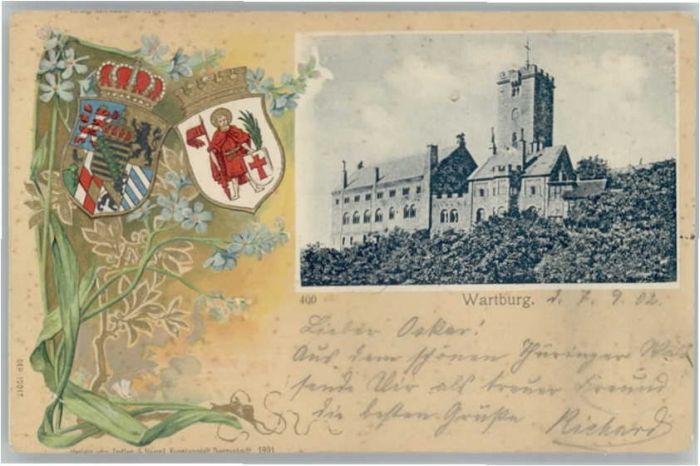 400 Wartburg. d. 7. 9. 02.
Lieber Oskar!
Aus dem schönen Thüringer
sende Dir als treuer Freund
die besten Grüße Richard
DEP. 10017
1901